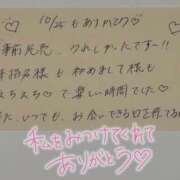 10/25もありがとう♡
事前完売、うれしかったです!!
本指名様も初めまして様も
えちえち♡で楽しい時間でした
また、いつでも、お会いできる日を待ってるね
私をみつけてくれて
ありがとう♡